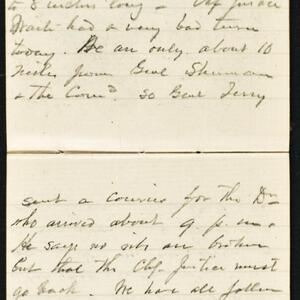 to 8 inches long - Chf Justice
Waite had a very bad turn
today. We are only about 10
miles from Genl Sherman
& the Comd. So Genl Terry
sent a courier for the Dr
who arrived about 9 p.m.
He says no ribs are broken
but that the Chf Justice must
go back. We have all fallen